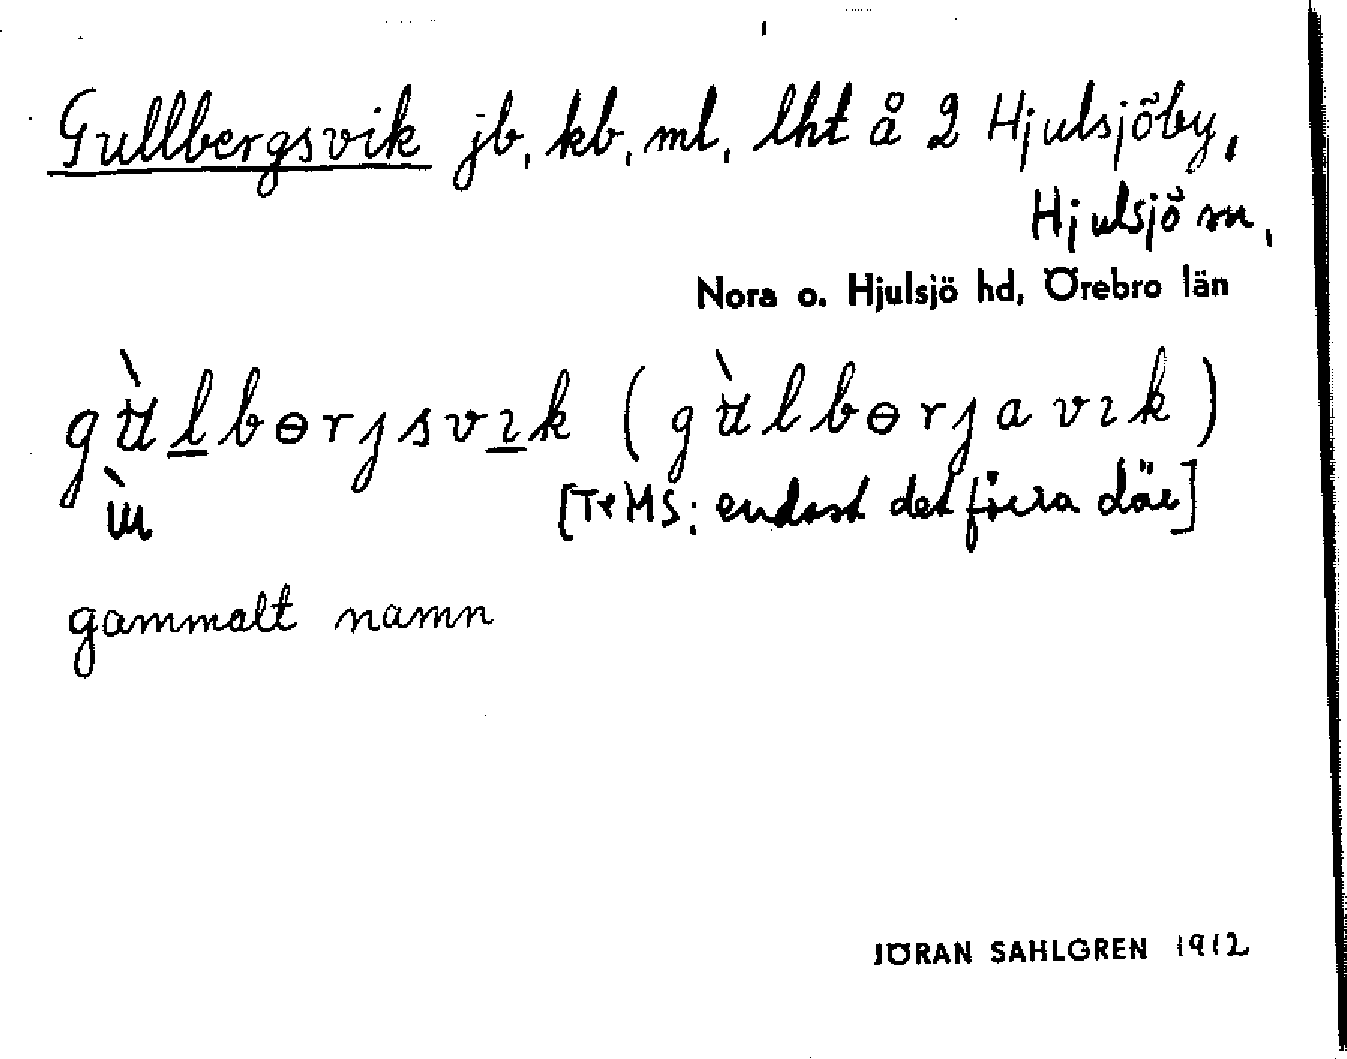 Gullbergsvik jb, kb, ml, lht å 2 Hjulsjöby,
Hjulsjö sn,
Nora o. Hjulsjö hd, Örebro län
gùlbɵrjsvɩk (gùlbɵrjavɩk)
[TrMS: endast det förra där]
gammalt namn
JÖRAN SAHLGREN 1912